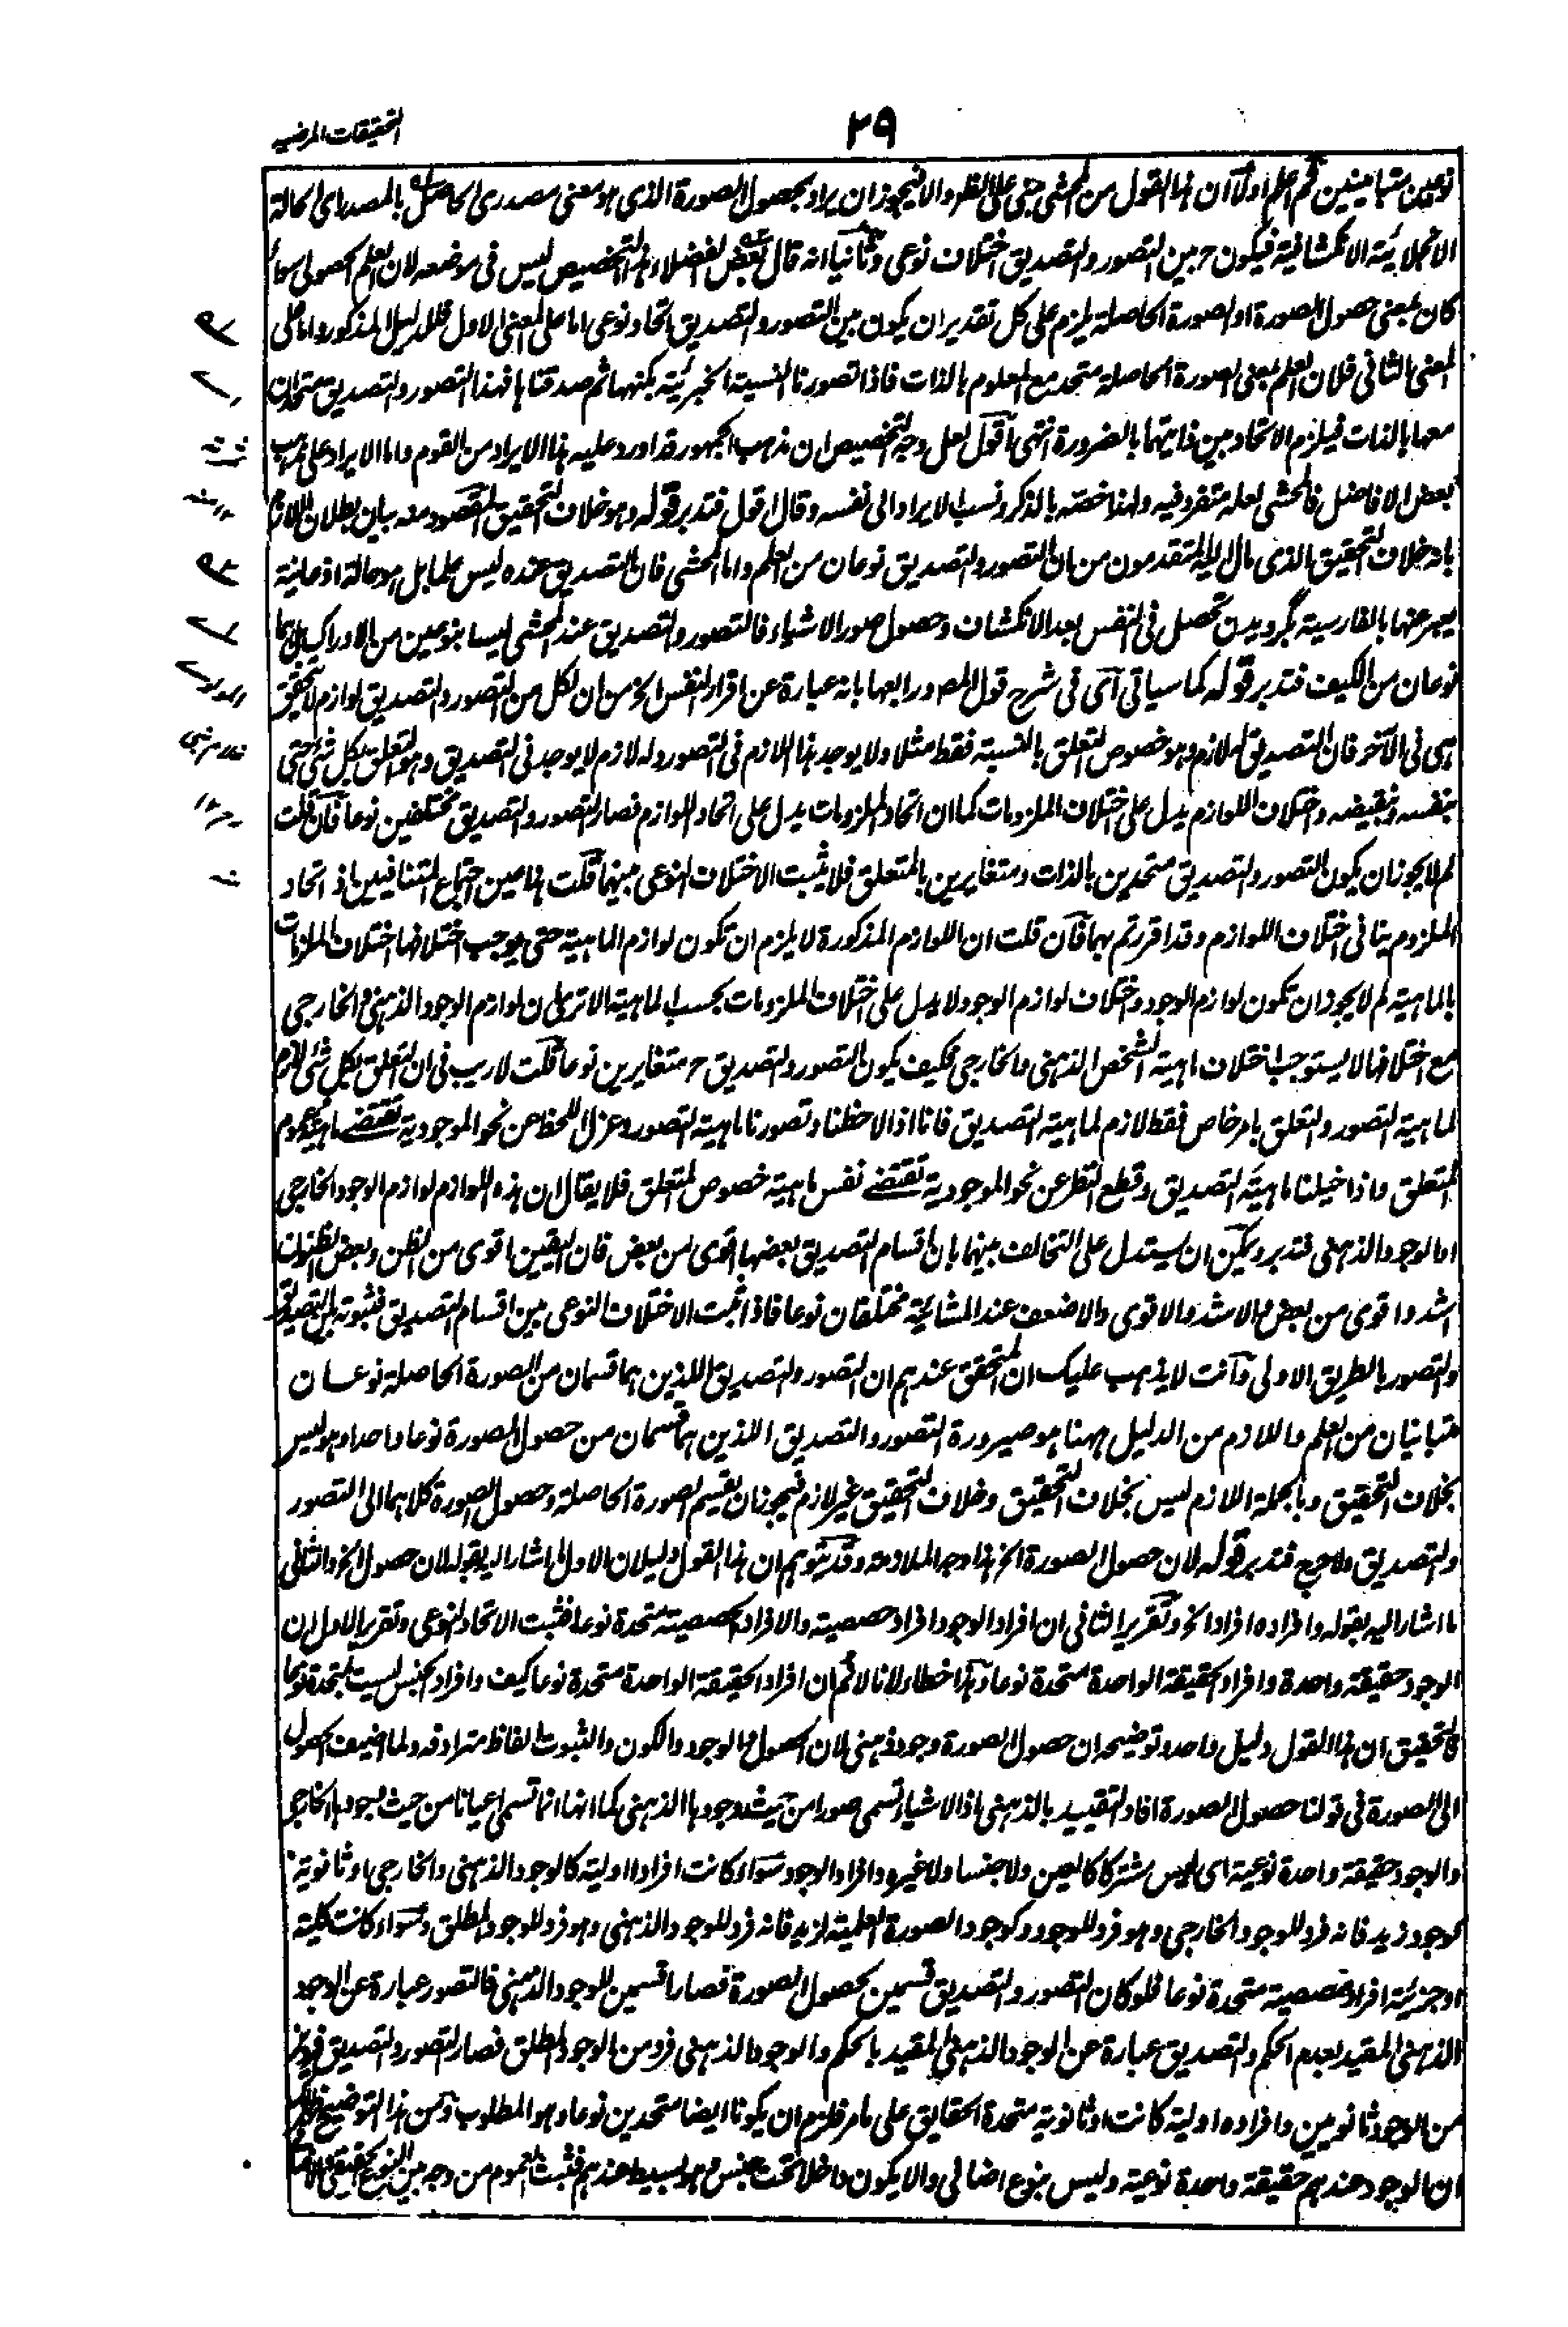 ٢٩
التحقيقات المرضيه
نوعين متباينين ثم اعلم اولا ان هذا القول من المحشى مبنى على الظاهر والا فيجوز ان يراد بحصول الصورة الذى هو معنى مصدرى الحاصل بالمصدر اى الحالة
الانجلائية الانكشافية فيكون ح بين التصور والتصديق اختلاف نوعى وثانيا انه قال بعض الفضلاء هذا التخصيص ليس فى موضعه لان العلم الحصولى سواء
كان بمعنى حصول الصورة او الصورة الحاصلة يلزم على كل تقدير ان يكون بين التصور والتصديق اتحاد نوعى اما على المعنى الاول فللدليل المذكور واما على
المعنى الثانى فلان العلم بمعنى الصورة الحاصلة متحد مع المعلوم بالذات فاذا تصورنا النسبة الخبرية بكنهها ثم صدقنا بها فهذا التصور والتصديق متحدان
معها بالذات فيلزم الاتحاد بين ذاتيهما بالضرورة انتهى اقول لعل وجه التخصيص ان مذهب الجمهور قد اورد عليه هذا الايراد من القوم واما الايراد على مذهب
بعض الافاضل فالمحشى لعله متفرد فيه ولهذا خصه بالذكر ونسب الايراد الى نفسه وقال اقول فتدبر قوله وهو خلاف التحقيق المقصود منه بيان بطلان اللازم
بانه خلاف التحقيق الذى مال اليه المتقدمون من ان التصور والتصديق نوعان من العلم واما المحشى فان التصديق عنده ليس بعلم بل هو حالة اذعانية
يعبر عنها بالفارسية بگرويدن تحصل فى النفس بعد الانكشاف وحصول صور الاشياء فالتصور والتصديق عند المحشى ليسا بنوعين من الادراك بل هما
نوعان من الكيف فتدبر قوله كما سياتى آى فى شرح قول المص ورابعها بانه عبارة عن اقرار النفس الخ من ان لكل من التصور والتصديق لوازم لا تتحقق
هى فى الآخر فان التصديق له لازم وهو خصوص التعلق بالنسبة فقط مثلا ولا يوجد هذا اللازم فى التصور وله لازم لا يوجد فى التصديق وهو التعلق بكل شئ حتى
بنفسه ونقيضه واختلاف اللوازم يدل على اختلاف الملزومات كما ان اتحاد الملزومات يدل على اتحاد اللوازم فصار التصور والتصديق مختلفين نوعا فان قلت
لم لا يجوز ان يكون التصور والتصديق متحدين بالذات ومتغايرين بالمتعلق فلا يثبت الاختلاف النوعى بينهما قلت هذا عين اجتماع المتنافيين اذ اتحاد
الملزوم ينافى اختلاف اللوازم وقد اقررتم بهما فان قلت ان اللوازم المذكورة لا يلزم ان تكون لوازم الماهية حتى يوجب اختلافها اختلاف الملزومات
بالماهية لم لا يجوز ان تكون لوازم الوجود واختلاف لوازم الوجود لا يدل على اختلاف الملزومات بحسب الماهية الا ترى ان لوازم الوجود الذهنى والخارجى
مع اختلافها لا يستوجب اختلاف ماهية الشخص الذهنى والخارجى فكيف يكون التصور والتصديق ح متغايرين نوعا قلت لا ريب فى ان التعلق بكل شئ لازم
لماهية التصور والتعلق بامر خاص فقط لازم لماهية التصديق فانا اذا لاحظنا وتصورنا ماهية التصور وعزل اللحظ عن نحو الموجودية تقتضى ماهيته عموم
المتعلق واذا خيلنا ماهية التصديق وقطع النظر عن نحو الموجودية تقتضى نفس ماهيته خصوص المتعلق فلا يقال ان هذه اللوازم لوازم الوجود الخارجى
او الوجود الذهنى فتدبر ويمكن ان يستدل على التخالف بينهما بان اقسام التصديق بعضها اقوى من بعض فان اليقين اقوى من الظن وبعض الظنون
اشد واقوى من بعض والاشد والاقوى والاضعف عند المشائية مختلفان نوعا فاذا ثبت الاختلاف النوعى بين اقسام التصديق فثبوته بين التصديق
والتصور بالطريق الاولى وانت لا يذهب عليك ان المتحقق عندهم ان التصور والتصديق اللذين هما قسمان من الصورة الحاصلة نوعان
متباينان من العلم واللازم من الدليل ههنا هو صيرورة التصور والتصديق اللذين هما قسمان من حصول الصورة نوعا واحدا وهو ليس
بخلاف التحقيق وبالجملة اللازم ليس بخلاف التحقيق وخلاف التحقيق غير لازم فيجوز ان تقسيم الصورة الحاصلة وحصول الصورة كلاهما الى التصور
والتصديق ولا حرج فتدبر قوله لان حصول الصورة الخ هذا وجه الملازمة وقد يتوهم ان هذا القول دليلان الاول ما اشار اليه بقوله لان حصول الخ والثانى
ما اشار اليه بقوله وافراده افراد الخ وتقرير الثانى ان افراد الوجود افراد حصصية والافراد الحصصية متحدة نوعا فثبت الاتحاد النوعى وتقرير الاول ان
الوجود حقيقة واحدة وافراد الحقيقة الواحدة متحدة نوعا وهذا خطاء لانا لا نم ان افراد الحقيقة الواحدة متحدة نوعا كيف وافراد الجنس ليست متحدة نوعا
فالتحقيق ان هذا القول دليل واحد وتوضيحه ان حصول الصورة وجود ذهنى لان الحصول والوجود والكون والثبوت الفاظ مترادفه ولما اضيف الحصول
الى الصورة فى قولنا حصول الصورة افاد التقييد بالذهنى اذ الاشياء تسمى صورا من حيث وجودها الذهنى كما انها انما تسمى اعيانا من حيث وجودها الخارجى
والوجود حقيقة واحدة نوعية اى ليس مشتركا كالعين ولا جنسا ولا غيره وافراد الوجود سواء كانت افرادا اولية كالوجود الذهنى والخارجى او ثانوية
كوجود زيد فانه فرد للوجود الخارجى وهو فرد للوجود وكوجود الصورة العلمية لزيد فانه فرد للوجود الذهنى وهو فرد للوجود المطلق وسواء كانت كلية
او جزئية افراد حصصية متحدة نوعا فلو كان التصور والتصديق قسمين لحصول الصورة فصارا قسمين للوجود الذهنى فالتصور عبارة عن الوجود
الذهنى المقيد بعدم الحكم والتصديق عبارة عن الوجود الذهنى المقيد بالحكم والوجود الذهنى فرد من الوجود المطلق فصار التصور والتصديق فردين
من الوجود ثانويين وافراده اولية كانت او ثانوية متحدة الحقايق على ما مر فلزم ان يكونا ايضا متحدين نوعا وهو المطلوب ومن هذا التوضيح ظهر
ان الوجود عندهم حقيقة واحدة نوعية وليس بنوع اضافى والا يكون داخلا تحت جنس وهو بسيط عندهم فثبت العموم من وجه بين النوع الحقيقى